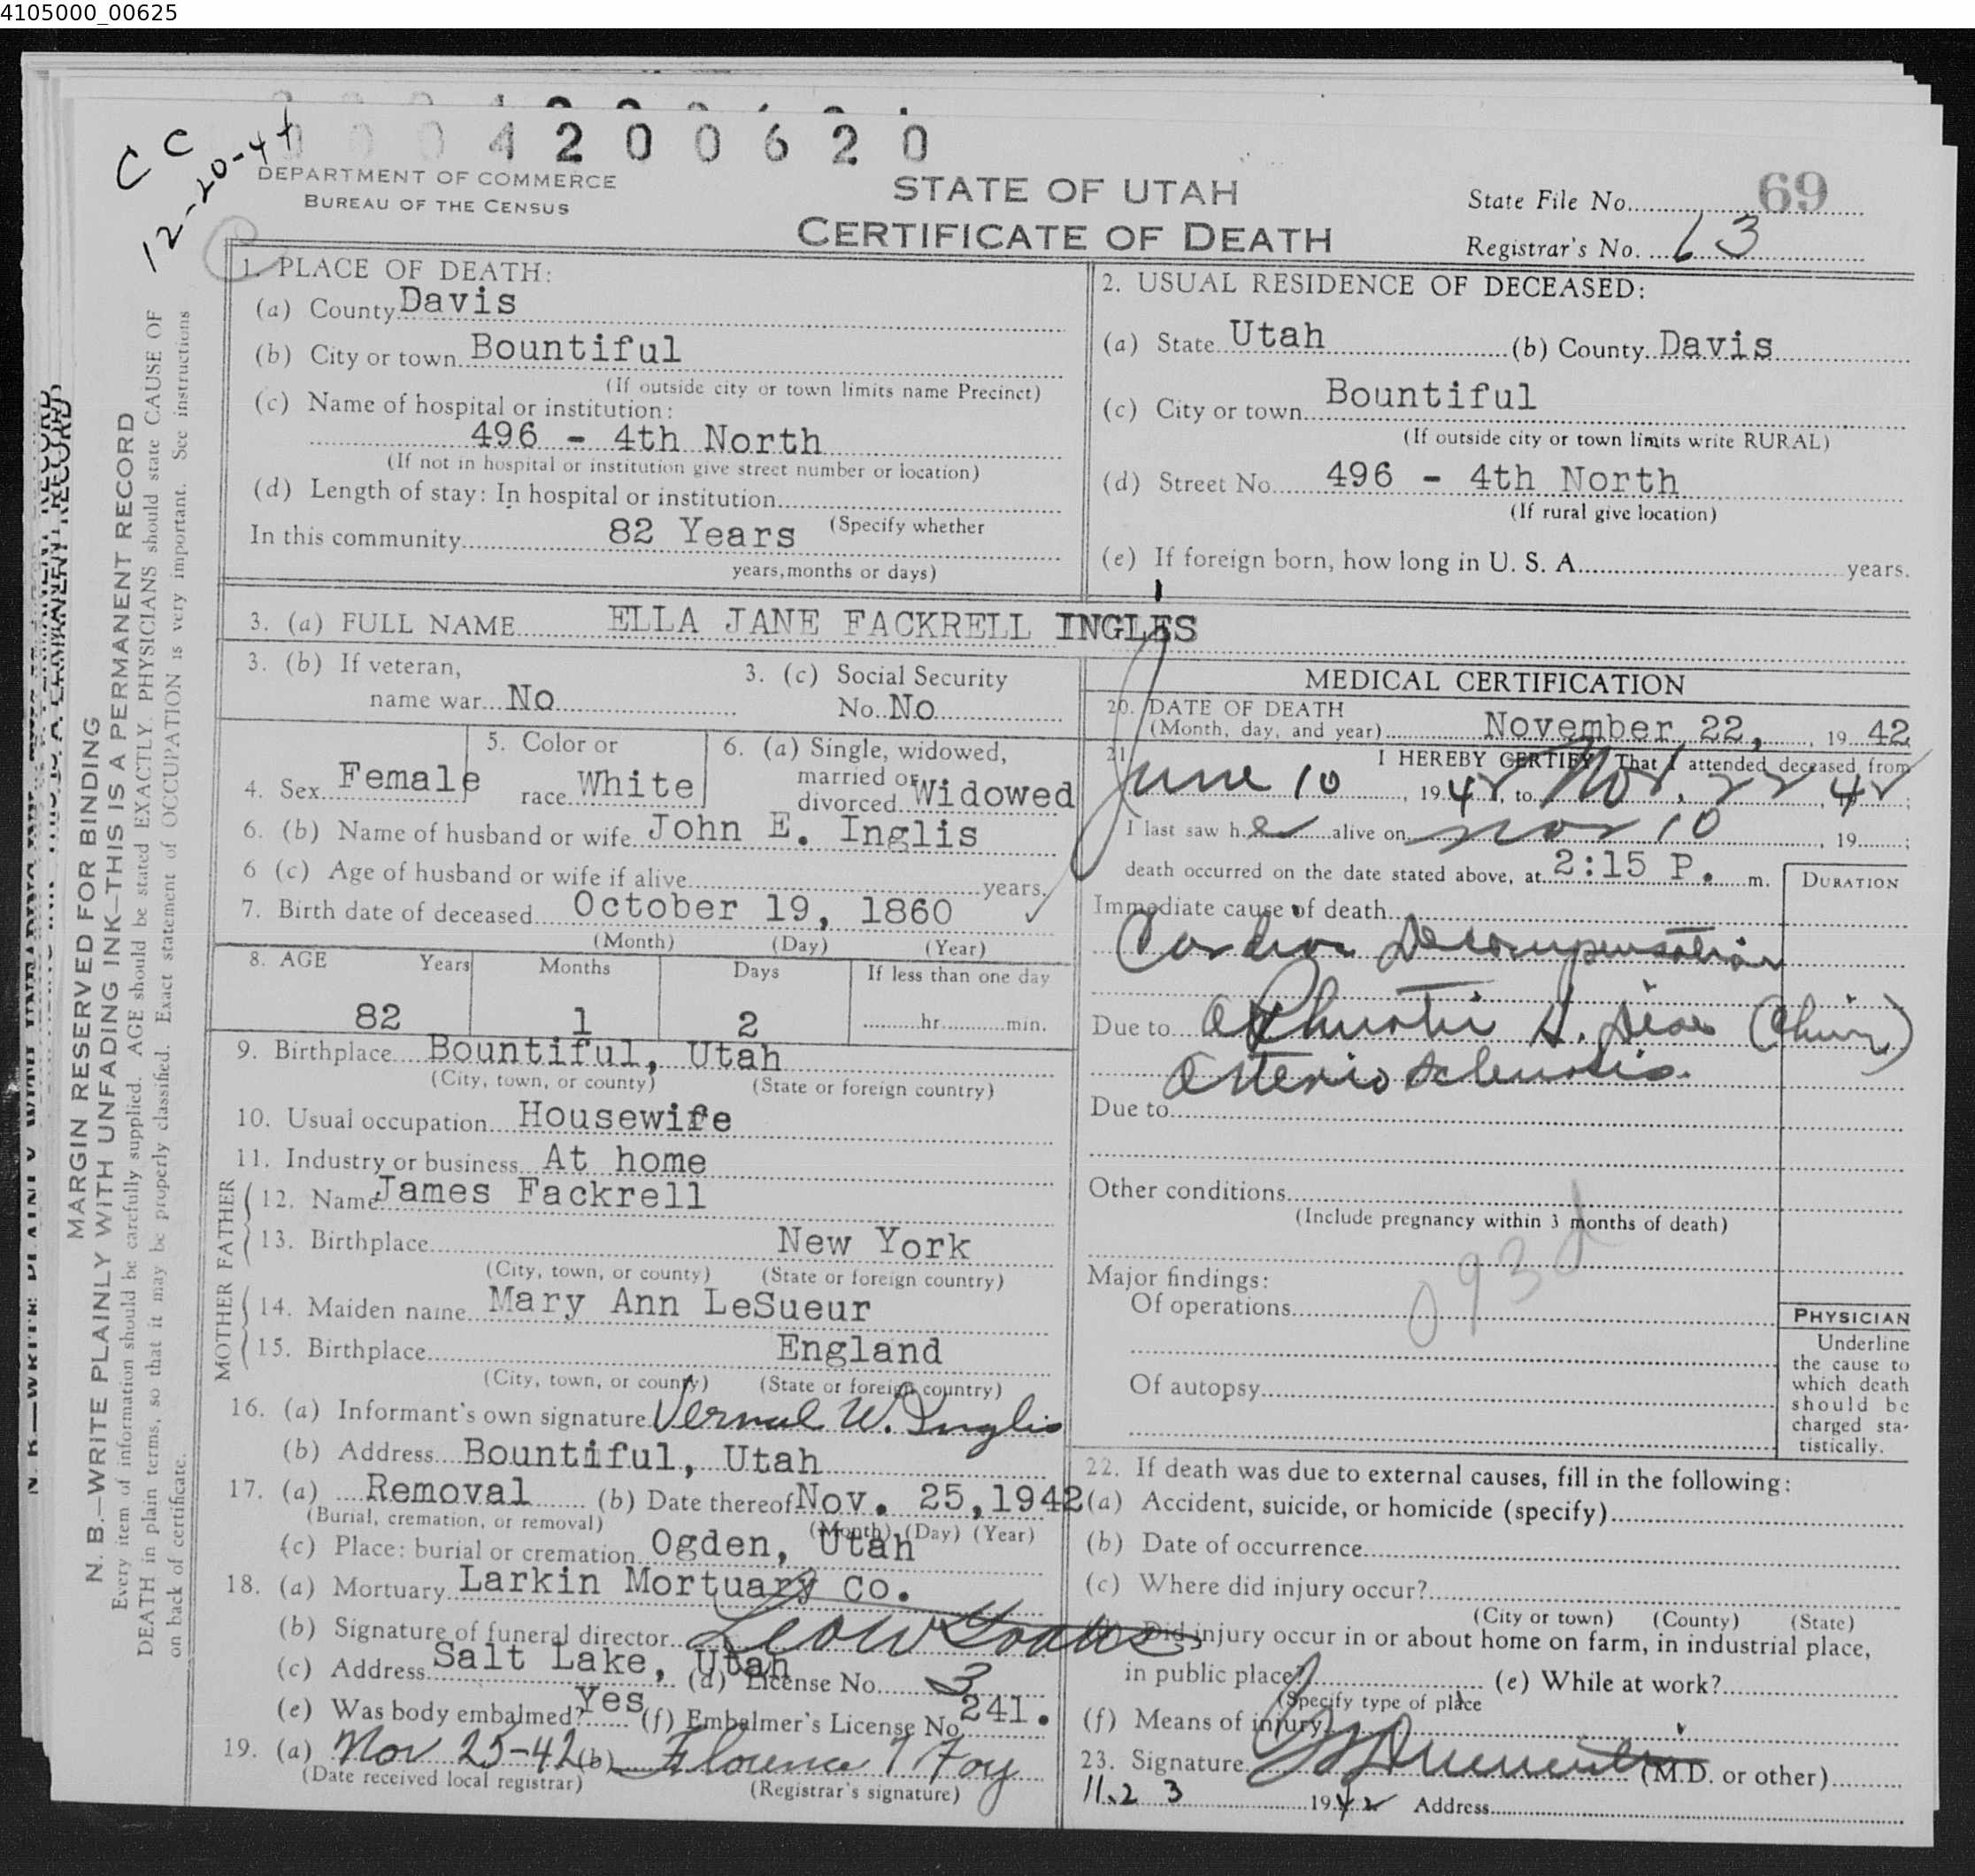 4105000_00625
0004200620
CC
12-20-44
DEPARTMENT OF COMMERCE
BUREAU OF THE CENSUS
STATE OF UTAH
CERTIFICATE OF DEATH
State File No. 69
Registrar's No. 63
MARGIN RESERVED FOR BINDING
N. B.—WRITE PLAINLY WITH UNFADING INK—THIS IS A PERMANENT RECORD
Every item of information should be carefully supplied. AGE should be stated EXACTLY. PHYSICIANS should state CAUSE OF
DEATH in plain terms, so that it may be properly classified. Exact statement of OCCUPATION is very important. See instructions
on back of certificate.
1. PLACE OF DEATH:
(a) County Davis
(b) City or town Bountiful
(If outside city or town limits name Precinct)
(c) Name of hospital or institution:
496 - 4th North
(If not in hospital or institution give street number or location)
(d) Length of stay: In hospital or institution
(Specify whether
In this community 82 Years
years, months or days)
2. USUAL RESIDENCE OF DECEASED:
(a) State Utah (b) County Davis
(c) City or town Bountiful
(If outside city or town limits write RURAL)
(d) Street No. 496 - 4th North
(If rural give location)
(e) If foreign born, how long in U. S. A. years.
3. (a) FULL NAME ELLA JANE FACKRELL INGLIS
3. (b) If veteran,
name war No
3. (c) Social Security
No. No
4. Sex Female
5. Color or
race White
6. (a) Single, widowed,
married or
divorced Widowed
6. (b) Name of husband or wife John E. Inglis
6 (c) Age of husband or wife if alive years.
7. Birth date of deceased October 19, 1860
(Month) (Day) (Year)
8. AGE Years Months Days If less than one day
82 1 2 hr. min.
9. Birthplace Bountiful, Utah
(City, town, or county) (State or foreign country)
10. Usual occupation Housewife
11. Industry or business At home
FATHER
12. Name James Fackrell
13. Birthplace New York
(City, town, or county) (State or foreign country)
MOTHER
14. Maiden name Mary Ann LeSueur
15. Birthplace England
(City, town, or county) (State or foreign country)
16. (a) Informant's own signature Vernal W. Inglis
(b) Address Bountiful, Utah
17. (a) Removal (b) Date thereof Nov. 25, 1942
(Burial, cremation, or removal) (Month) (Day) (Year)
(c) Place: burial or cremation Ogden, Utah
18. (a) Mortuary Larkin Mortuary Co.
(b) Signature of funeral director
(c) Address Salt Lake, Utah (d) License No. 3
(e) Was body embalmed? Yes (f) Embalmer's License No. 241.
19. (a) Nov 25-42 (b) Florence T Foy
(Date received local registrar) (Registrar's signature)
MEDICAL CERTIFICATION
20. DATE OF DEATH
(Month, day, and year) November 22, 19 42
21. I HEREBY CERTIFY, That I attended deceased from
June 10, 1942, to Nov. 22 19 42;
I last saw her alive on Nov 10, 19 ;
death occurred on the date stated above, at 2:15 P. m.
DURATION
Immediate cause of death
Cardiac Decompensation
Due to
Arteriosclerosis.
Due to
Other conditions
(Include pregnancy within 3 months of death)
093d
Major findings:
Of operations
Of autopsy
PHYSICIAN
Underline
the cause to
which death
should be
charged sta-
tistically.
22. If death was due to external causes, fill in the following:
(a) Accident, suicide, or homicide (specify)
(b) Date of occurrence
(c) Where did injury occur?
(City or town) (County) (State)
(d) Did injury occur in or about home on farm, in industrial place,
in public place? (e) While at work?
(Specify type of place
(f) Means of injury
23. Signature (M.D. or other)
11.23 1942 Address